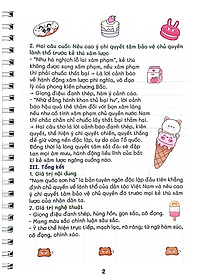 2. Hai câu cuối: Nêu cao ý chí quyết tâm bảo vệ chủ quyền
lãnh thổ trước kẻ thù xâm lược
- "Như hà nghịch lỗ lai xâm phạm", kẻ thù
không được sang xâm phạm, nếu xâm phạm
thì phải chuốc thất bại → Là lời cảnh báo
về hành động xâm lược phi nghĩa, vô đạo
lý của phong kiến phương Bắc.
→ Giọng điệu đanh thép, hàm ý cảnh cáo.
- "Nhữ đẳng hành khan thủ bại hư", lời cảnh
báo hậu quả thê thảm đối với bọn xâm lăng
nếu như cố tình xâm phạm chủ quyền nước Nam
thì chắc chắn chỉ chuốc lấy thất bại thảm hại.
→ Hai câu thơ là lời cảnh báo đanh thép, kiên
quyết, thể hiện ý chí quyết chiến, quyết thắng
để giữ vững nền độc lập, tự do của Tổ quốc.
Đồng thời là lòng quyết tâm sắt đá sẽ đập
tan mọi âm mưu, hành động liều lĩnh của bất
kì kẻ xâm lược ngông cuồng nào.
III. Tổng kết
1. Giá trị nội dung
"Nam quốc sơn hà" là bản tuyên ngôn độc lập đầu tiên khẳng
định chủ quyền về lãnh thổ của dân tộc Việt Nam và nêu cao
ý chí quyết tâm bảo vệ chủ quyền đó trước mọi kẻ thù xâm
lược.
2. Giá trị nghệ thuật
- Giọng điệu đanh thép, hùng hồn, gọn sắc, cô đọng.
- Mang màu sắc chính luận sâu sắc.
- Ý thơ thể hiện trực tiếp, mạch lạc, rõ ràng; từ ngữ hàm súc,
cô đọng, chính xác.
2